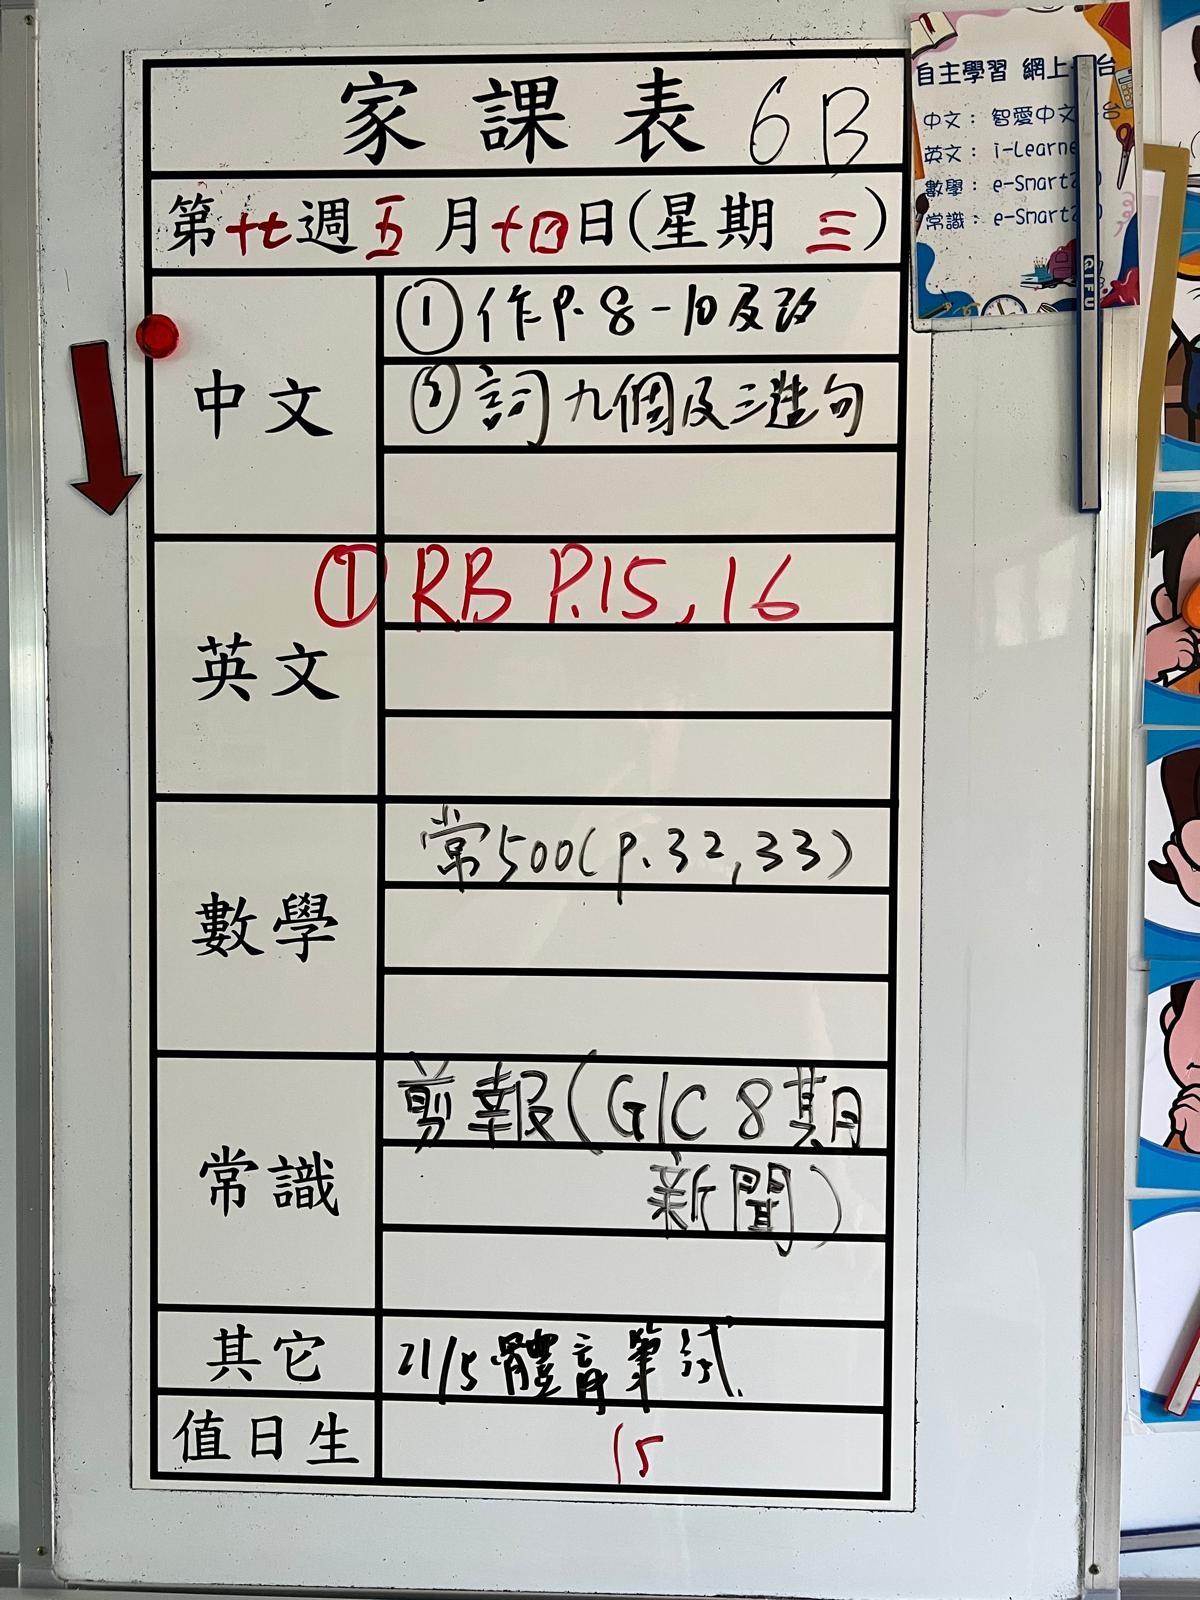 家課表 6B
第十七週五月十四日(星期三)
中文
①作P.8-10及改
②詞九個及三造句
英文
①RB P.15,16
數學
常500(P.32,33)
常識
剪報(GIC 8期
新聞)
其它
21/5體育筆試
值日生
15
自主學習 網上 台
中文： 智愛中文 台
英文： i-Learne
數學： e-Smart
常識： e-Smart
QIFU